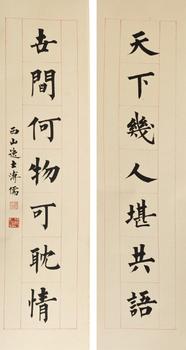 天下幾人堪共語
世間何物可耽情
西山逸士溥儒